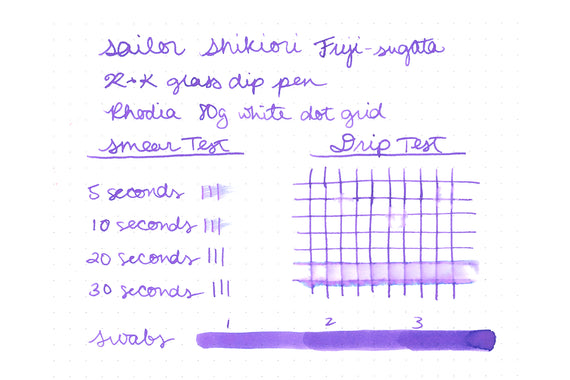 Sailor Shikiori Fuji-sugata
R+K glass dip pen
Rhodia 80g white dot grid
Smear Test
Drip Test
5 seconds
10 seconds
20 seconds
30 seconds
Swabs 1 2 3